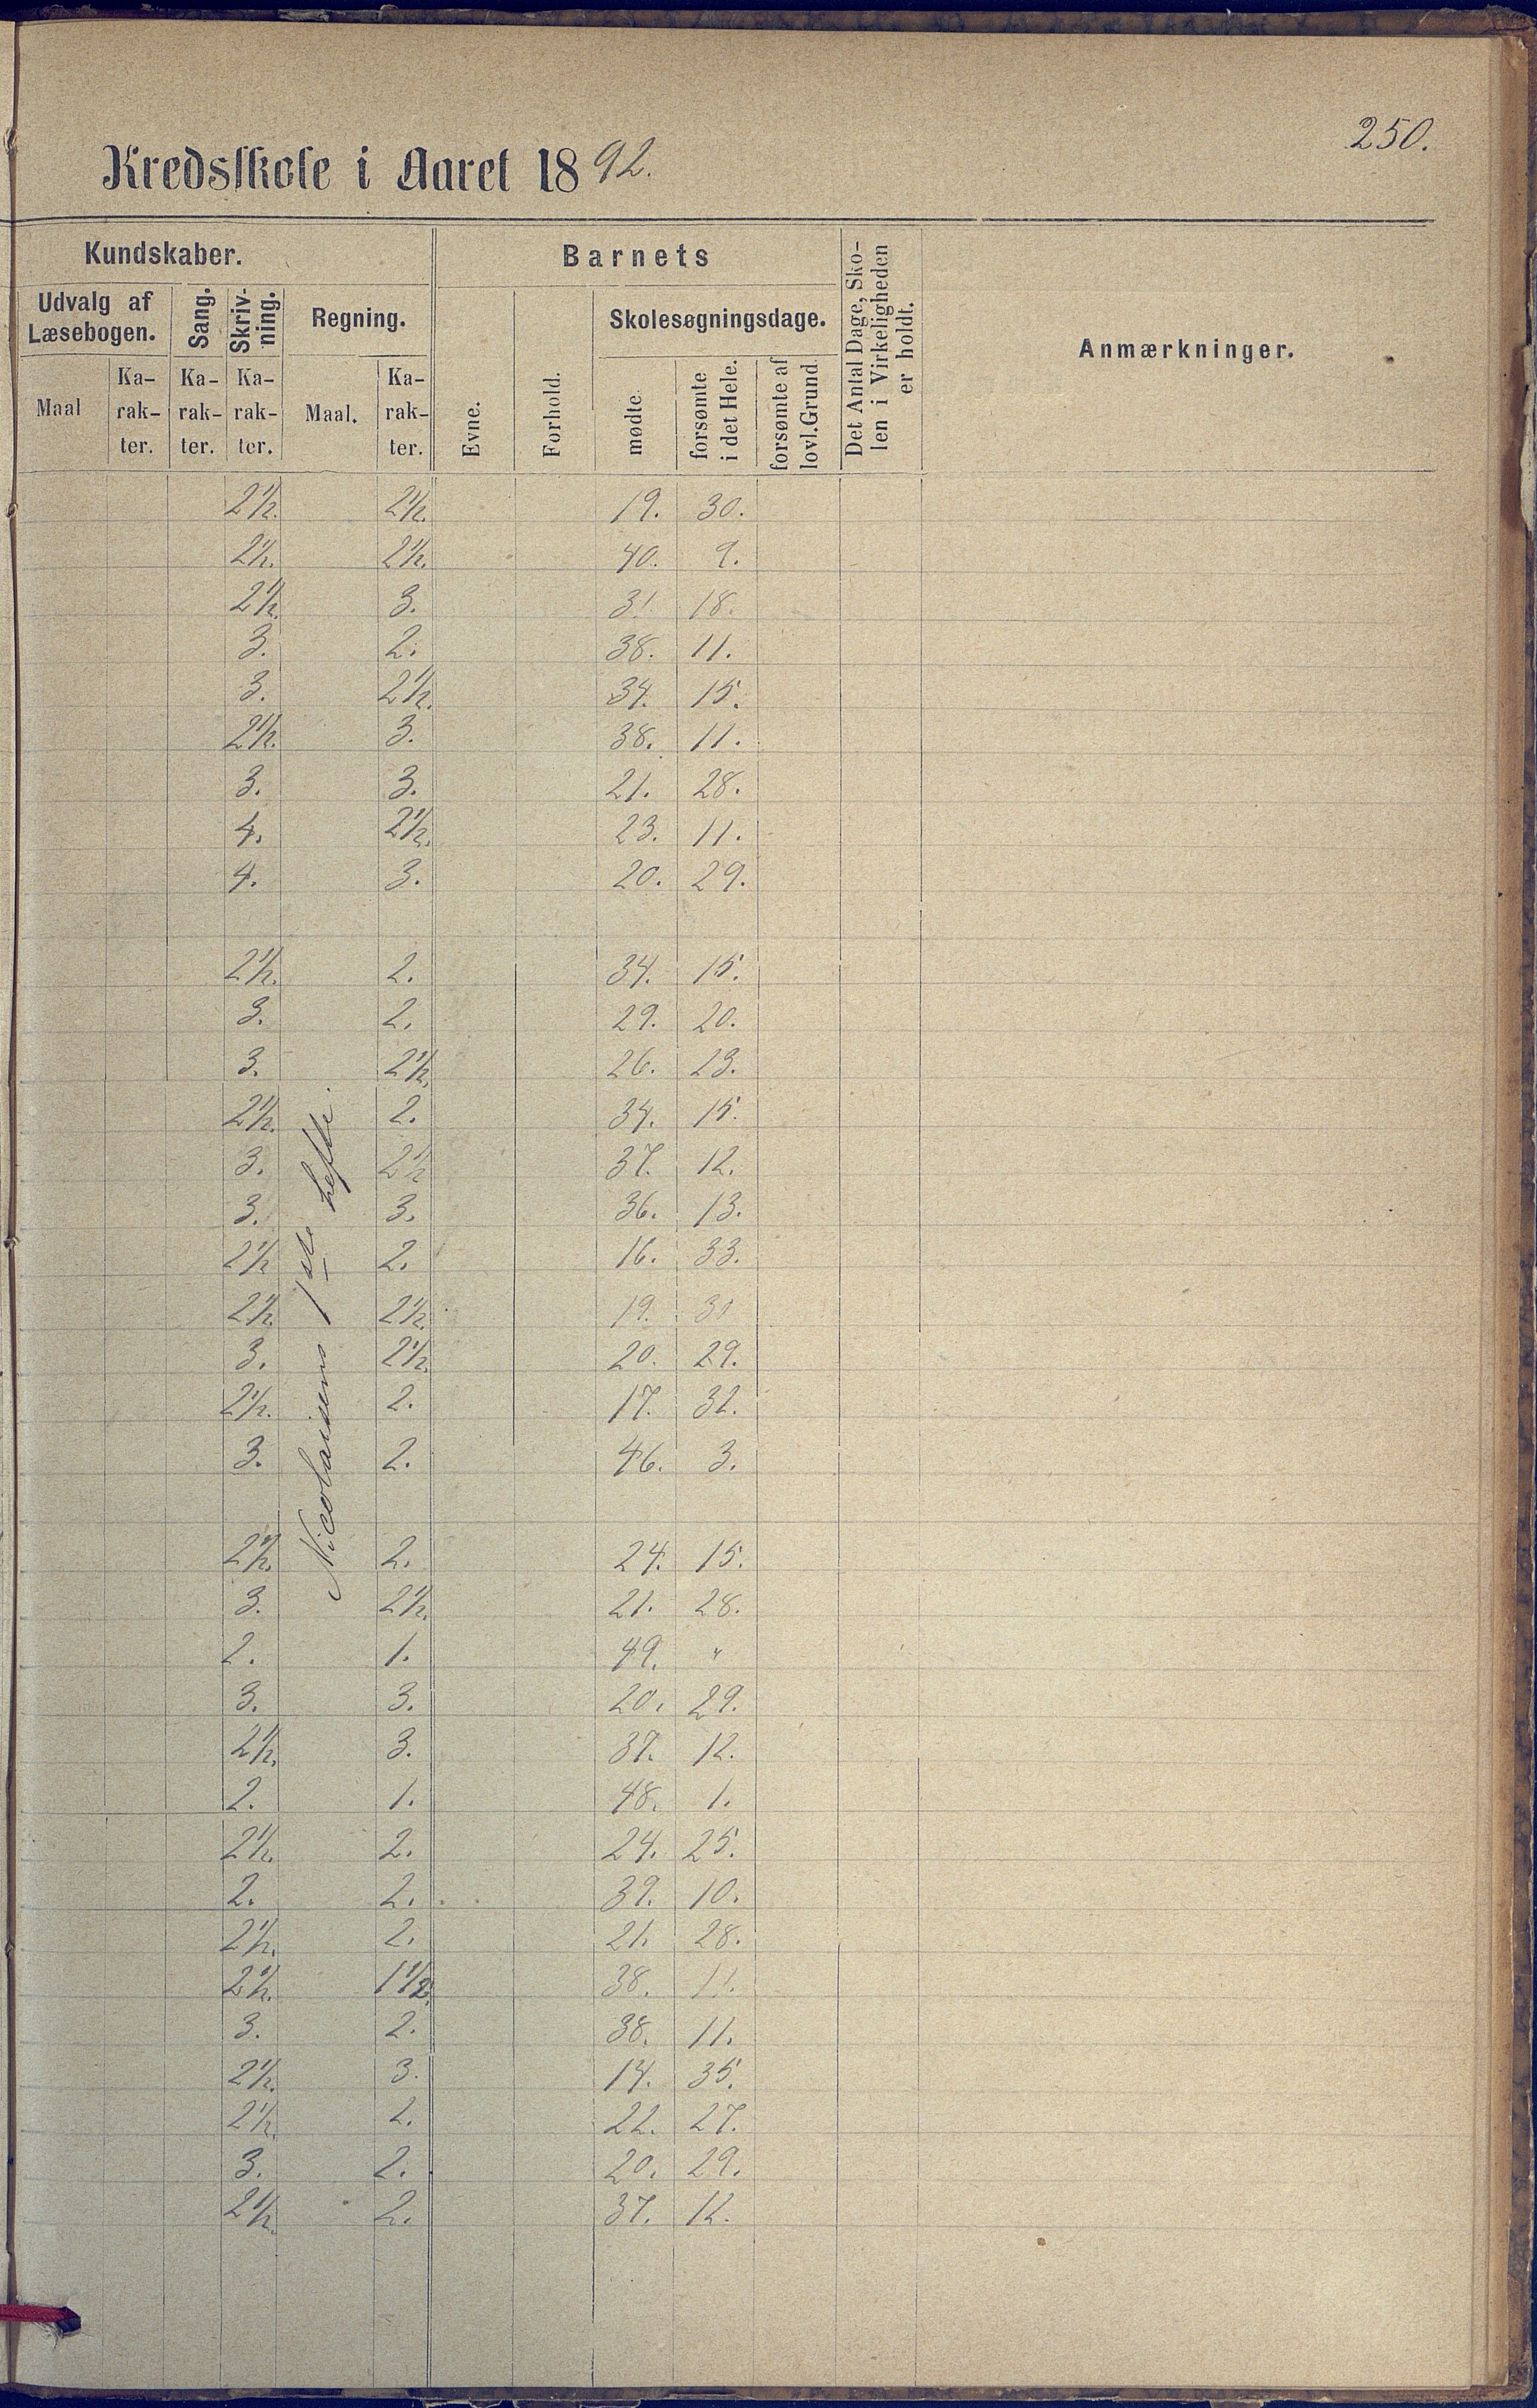 250.
Kredsskole i Aaret 1892.
Kundskaber.
Barnets
Det Antal Dage, Sko-
len i Virkeligheden
er holdt.
Anmærkninger.
Udvalg af
Læsebogen.
Sang.
Skriv-
ning.
Regning.
Evne.
Forhold.
Skolesøgningsdage.
Maal
Ka-
rak-
ter.
Ka-
rak-
ter.
Ka-
rak-
ter.
Maal.
Ka-
rak-
ter.
mødte.
forsømte
i det Hele.
forsømte af
lovl. Grund.
2½. 2½. 19. 30.
2½. 2½. 40. 9.
2½. 3. 31 18.
3. 2. 38. 11.
3. 2½. 34. 15.
2½. 3. 38. 11.
3. 3. 21. 28.
4. 2½. 23. 11.
4. 3. 20. 29.
2½. 2. 34. 15.
3. 2. 29. 20.
3. 2½. 26. 23.
2½. 2. 34. 15.
3. 2½ 37. 12.
3. 3. 36. 13.
2½ 2. 16. 33.
2½. 2½. 19. 30
3. 2½. 20. 29.
2½. 2. 17. 32.
3. 2. 46. 3.
Nicolaisens 1ste hefte.
2½. 2. 24. 15.
3. 2½. 21. 28.
2. 1. 49. "
3. 3. 20. 29.
2½. 3. 37. 12.
2. 1. 48. 1.
2½. 2. 24. 25.
2. 2. 39. 10.
2½. 2. 21. 28.
2½. 1½. 38. 11.
3. 2. 38. 11.
2½. 3. 14. 35.
2½. 2. 22. 27.
3. 2. 20. 29.
2½. 2. 37. 12.